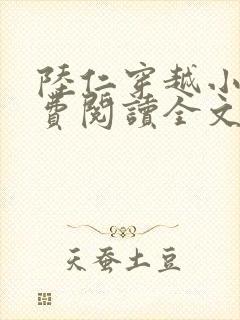 陸仁穿越小
費閱讀全文
天蚕土豆